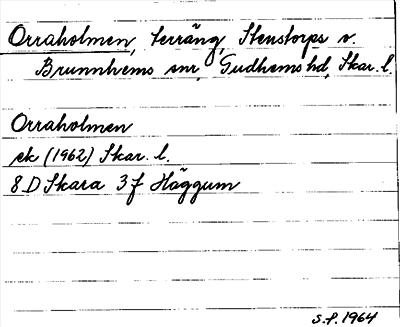 Orraholmen, terräng, Stenstorps o.
Brunnhems snr, Gudhems hd, Skar. l.
Orraholmen
ek (1962) Skar. l.
8 D Skara 3 f Häggum
S.P. 1964